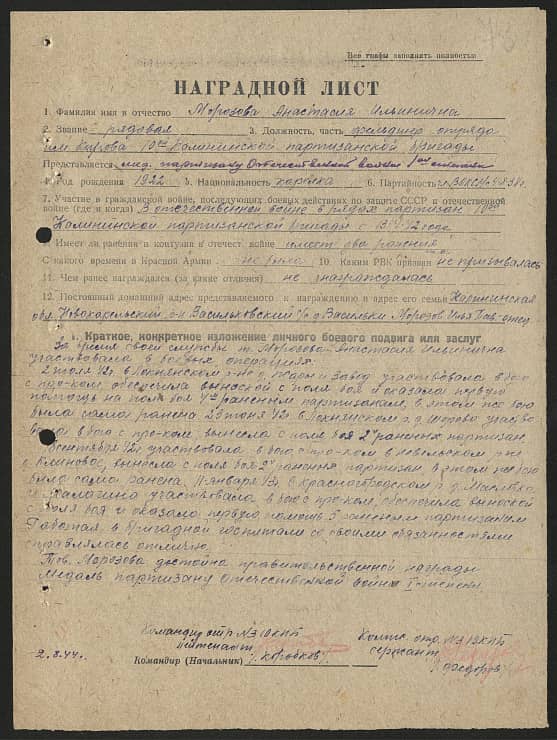 Все графы заполнять полностью
НАГРАДНОЙ ЛИСТ
1. Фамилия имя и отчество Морозова Анастасия Ильинична
2. Звание рядовая 3. Должность, часть фельдшер отряда
им Кирова 10ой Калининской партизанской бригады
Представляется мед. партизану Отечественной войны 1ой степени
4. Год рождения 1922 5. Национальность карелка 6. Партийность
7. Участие в гражданской войне, последующих боевых действиях по защите СССР и отечественной
войне (где и когда) В отечественной войне в рядах партизан 10ой
Калининской партизанской бригады с
8. Имеет ли ранения и контузии в отечест. войне имеет два ранения
С какого времени в Красной Армии не была 10. Каким РВК призван не призывалась
11. Чем ранее награждался (за какие отличия) не награждалась
12. Постоянный домашний адрес представляемого к награждению и адрес его семьи Калининская
обл. Новокарельский р-н Васильковский с/с д. Васильки Морозов Илья Пав- отец
1. Краткое, конкретное изложение личного боевого подвига или заслуг
За время своей службы т. Морозова Анастасия Ильинична
участвовала в боевых операциях.
2 июля 42г в Локнянском р-не д. и Завод участвовала в бою
с пр-ком, обеспечила выноской с поля боя и оказала первую
помощь на поле боя 4м раненым партизанам, в этом же бою
была сама ранена 29 июня 42г в Локнянском р. д. участво
вала в бою с пр-ком, вынесла с поля боя 2х раненых партизан,
сентября 42г участвовала в бою с пр-ком в Невельском р-не
д. Блиново, вынесла с поля боя 2х раненых партизан в этом же бою
была сама ранена, января 43г в Красногородском р д.
и участвовала в бою с пр-ком, обеспечила выноской
с поля боя и оказала первую помощь 5 раненым партизанам
Работая в бригадной госпитали со своими обязанностями
справлялась отлично.
Тов. Морозова достойна правительственной награды
Медаль партизану Отечественной войны I степени
Командир отр №3 10 КПБ
Комис. отр. №3 10 КПБ
лейтенант
сержант
2.3.44г.
Командир (Начальник) /Коробков/
/Федоров/